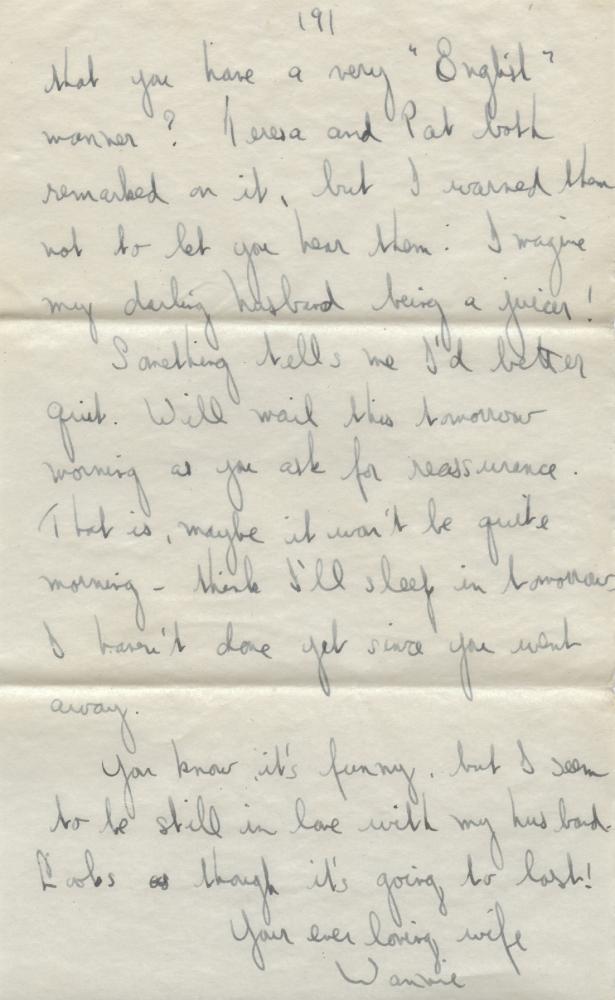 191
that you have a very "English"
manner? Teresa and Pat both
remarked on it, but I warned them
not to let you hear them. Imagine
my darling husband being a juicer!
Something tells me I'd better
quiet. Will mail this tomorrow
morning as you ask for reassurence.
That is, maybe it won't be quite
morning - think I'll sleep in tomorrow.
I haven't done yet since you went
away.
You know, it's funny, but I seem
to be still in love with my husband.
Looks as though it's going to last!
Your ever loving wife
Wannie